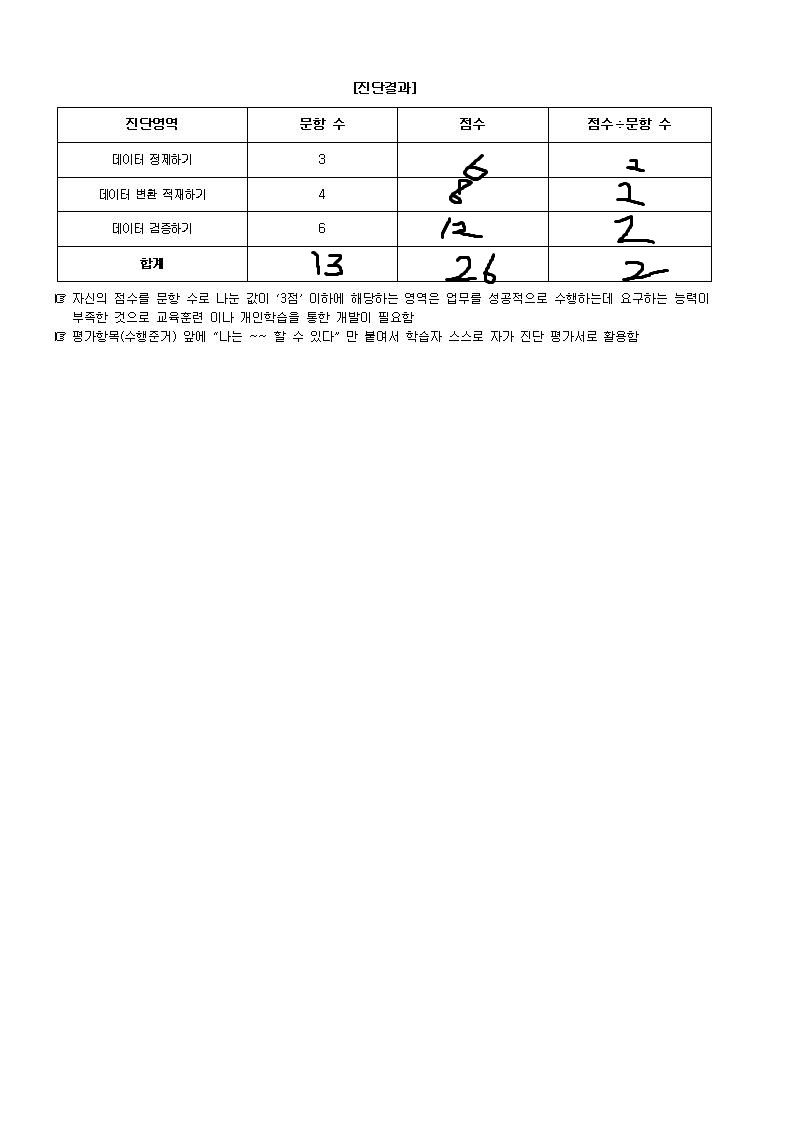 [진단결과]
진단영역 문항 수 점수 점수÷문항 수
데이터 정제하기 3 6 2
데이터 변환 적재하기 4 8 2
데이터 검증하기 6 12 2
합계 13 26 2
☞ 자신의 점수를 문항 수로 나눈 값이 ‘3점’ 이하에 해당하는 영역은 업무를 성공적으로 수행하는데 요구하는 능력이
부족한 것으로 교육훈련 이나 개인학습을 통한 개발이 필요함
☞ 평가항목(수행준거) 앞에 “나는 ~~ 할 수 있다” 만 붙여서 학습자 스스로 자가 진단 평가서로 활용함